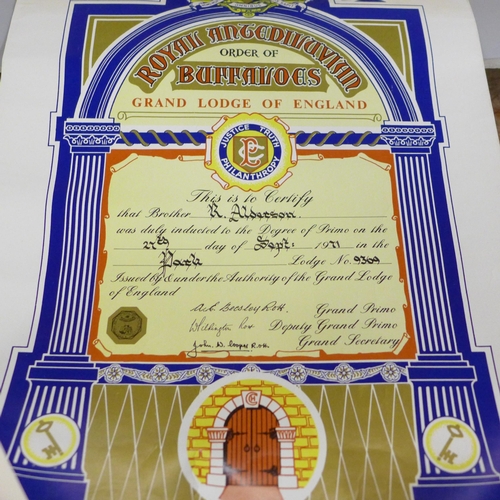 ROYAL ANTEDILUVIAN
ORDER OF
BUFFALOES
GRAND LODGE OF ENGLAND
JUSTICE TRUTH
PHILANTHROPY
This is to Certify
that Brother R. Alderson.
was duly inducted to the Degree of Primo on the
27th day of Sept: 1971 in the
Park Lodge No. 9309
Issued by & under the Authority of the Grand Lodge
of England
Grand Primo
Deputy Grand Primo
John W. Cooper R.O.H. Grand Secretary